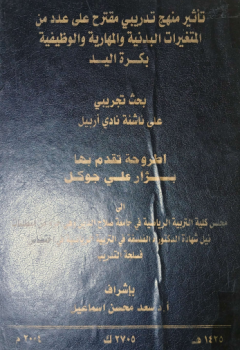 تأثير منهج تدريبي مقترح على عدد من
المتغيرات البدنية والمهارية والوظيفية
بكرة اليد
بحث تجريبي
على ناشئة نادي أربيل
اطروحة تقدم بها
بزار علي جوكل
الى
مجلس كلية التربية الرياضية في جامعة صلاح الدين
نيل شهادة الدكتوراه الفلسفة في التربية
فلسفة التدريب
بإشراف
أ.د. سعد محسن اسماعيل
١٤٢٥ هـ ٢٧٠٥ ك ٢٠٠٤ م